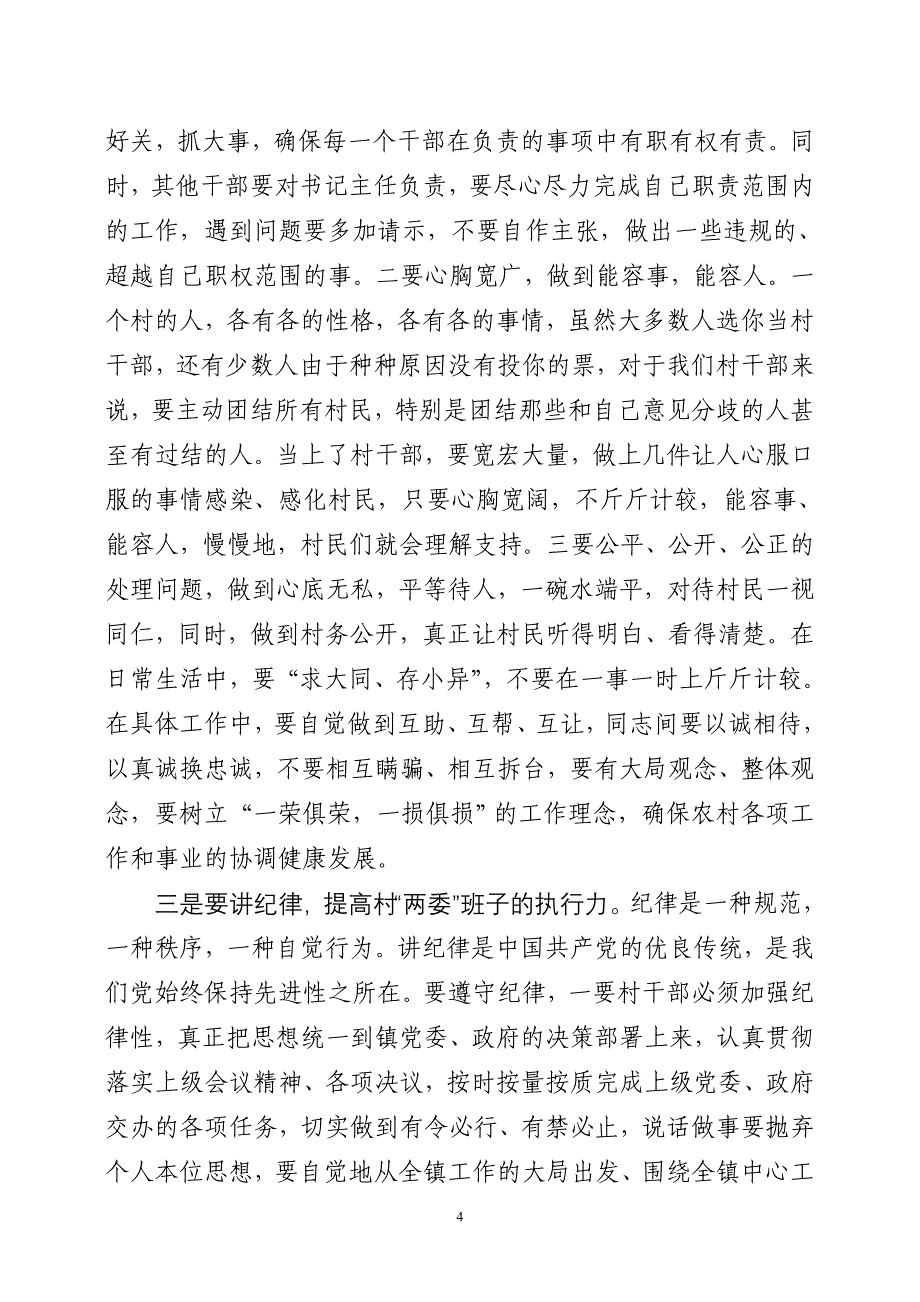 好关，抓大事，确保每一个干部在负责的事项中有职有权有责。同
时，其他干部要对书记主任负责，要尽心尽力完成自己职责范围内
的工作，遇到问题要多加请示，不要自作主张，做出一些违规的、
超越自己职权范围的事。二要心胸宽广，做到能容事，能容人。一
个村的人，各有各的性格，各有各的事情，虽然大多数人选你当村
干部，还有少数人由于种种原因没有投你的票，对于我们村干部来
说，要主动团结所有村民，特别是团结那些和自己意见分歧的人甚
至有过结的人。当上了村干部，要宽宏大量，做上几件让人心服口
服的事情感染、感化村民，只要心胸宽阔，不斤斤计较，能容事、
能容人，慢慢地，村民们就会理解支持。三要公平、公开、公正的
处理问题，做到心底无私，平等待人，一碗水端平，对待村民一视
同仁，同时，做到村务公开，真正让村民听得明白、看得清楚。在
日常生活中，要“求大同、存小异”，不要在一事一时上斤斤计较。
在具体工作中，要自觉做到互助、互帮、互让，同志间要以诚相待，
以真诚换忠诚，不要相互瞒骗、相互拆台，要有大局观念、整体观
念，要树立“一荣俱荣，一损俱损”的工作理念，确保农村各项工
作和事业的协调健康发展。
三是要讲纪律，提高村“两委”班子的执行力。纪律是一种规范，
一种秩序，一种自觉行为。讲纪律是中国共产党的优良传统，是我
们党始终保持先进性之所在。要遵守纪律，一要村干部必须加强纪
律性，真正把思想统一到镇党委、政府的决策部署上来，认真贯彻
落实上级会议精神、各项决议，按时按量按质完成上级党委、政府
交办的各项任务，切实做到有令必行、有禁必止，说话做事要抛弃
个人本位思想，要自觉地从全镇工作的大局出发、围绕全镇中心工
4